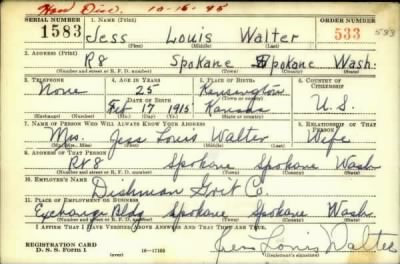 Hon Disc. 10-16-45
SERIAL NUMBER 1. NAME (Print) ORDER NUMBER
1583 Jess Louis Walter 533 583
(First) (Middle) (Last)
2. ADDRESS (Print)
R8 Spokane Spokane Wash.
(Number and street or R. F. D. number) (Town) (County) (State)
3. TELEPHONE 4. AGE IN YEARS 5. PLACE OF BIRTH 6. COUNTRY OF CITIZENSHIP
None 25 Kensington
DATE OF BIRTH (Town or county)
Feb 17 1915 Kansas U.S.
(Exchange) (Number) (Mo.) (Day) (Yr.) (State or country)
7. NAME OF PERSON WHO WILL ALWAYS KNOW YOUR ADDRESS 8. RELATIONSHIP OF THAT PERSON
Mrs. Jess Louis Walter Wife
(Mr., Mrs., Miss) (First) (Middle) (Last)
9. ADDRESS OF THAT PERSON
Rt 8 Spokane Spokane Wash
(Number and street or R. F. D. number) (Town) (County) (State)
10. EMPLOYER'S NAME
Dishman Grit Co.
11. PLACE OF EMPLOYMENT OR BUSINESS
Exchange Bldg Spokane Spokane Wash.
(Number and street or R. F. D. number) (Town) (County) (State)
I AFFIRM THAT I HAVE VERIFIED ABOVE ANSWERS AND THAT THEY ARE TRUE.
REGISTRATION CARD
D. S. S. Form 1 (over) 16-17105 Jess Louis Walter
(Registrant's signature)